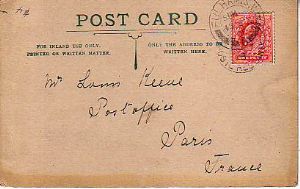 POST CARD
FOR INLAND USE ONLY,
PRINTED OR WRITTEN MATTER.
ONLY THE ADDRESS TO BE
WRITTEN HERE.
Mr Louis Reene
Postoffice
Paris
France